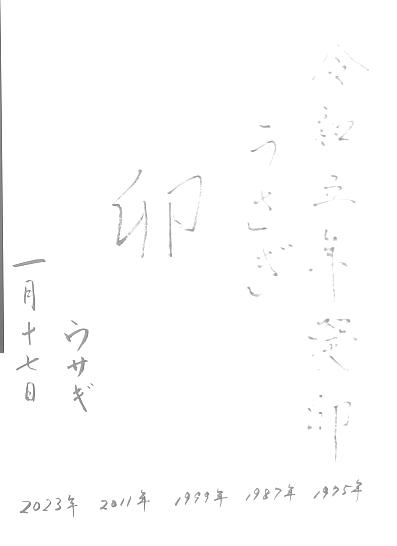 令和五年癸卯
うさぎ
卯
ウサギ
一月十七日
2023年 2011年 1999年 1987年 1975年